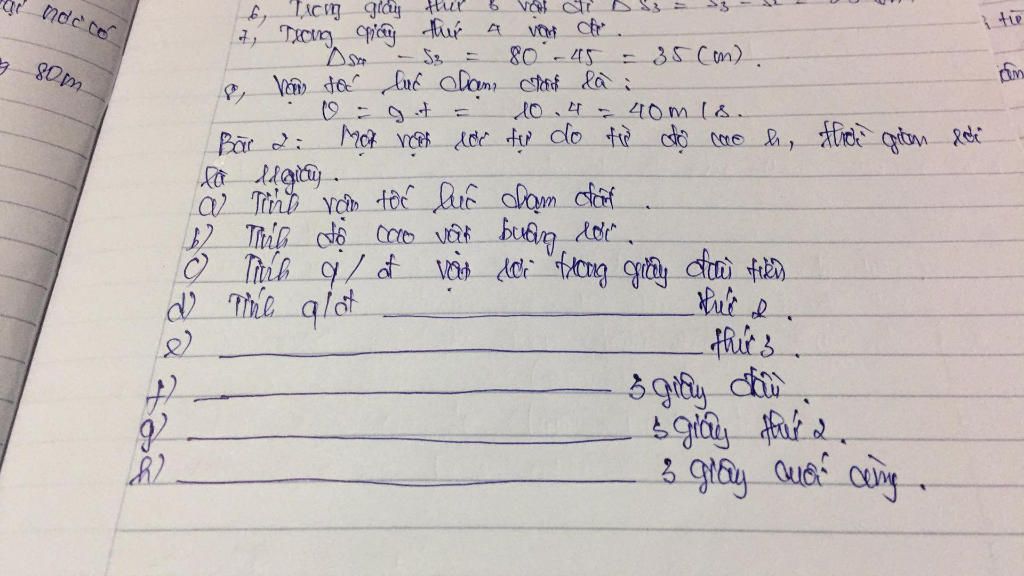 80m
6, Trong giây thứ 3 vật đi Δs3 = s3 - s2 =
7, Trong giây thứ 4 vật đi.
Δs4 - s3 = 80 - 45 = 35 (m).
8, Vận tốc lúc chạm đất là:
v = g.t = 10.4 = 40m/s.
Bài 2: Một vật rơi tự do từ độ cao h, thời gian rơi
là giây.
a) Tính vận tốc lúc chạm đất.
b) Tính độ cao vật buông rơi.
c) Tính q/đ vật rơi trong giây đầu tiên
d) Tính q/đ ____ thứ 2.
e) ____ thứ 3.
f) ____ 3 giây đầu.
g) ____ 3 giây thứ 2.
h) ____ 3 giây cuối cùng.